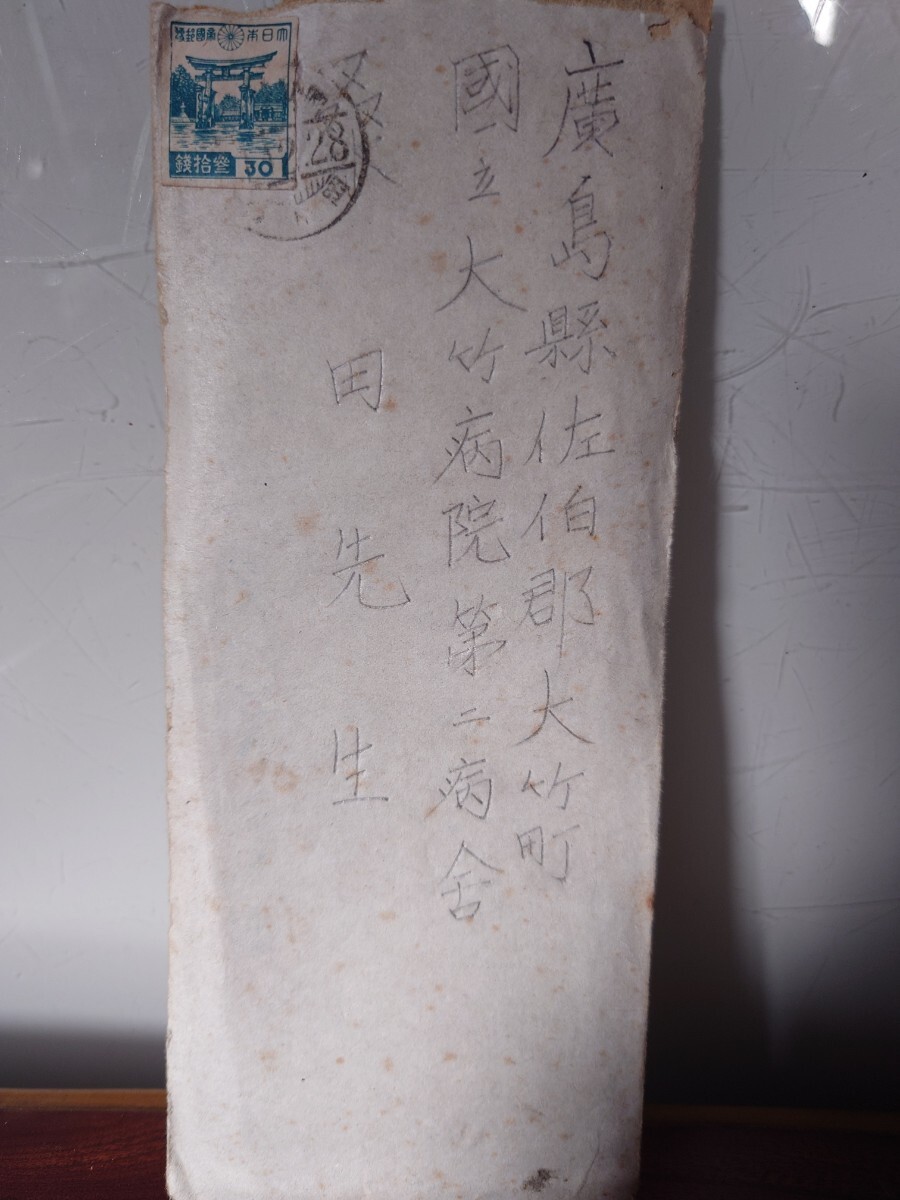 廣島縣佐伯郡大竹町
國立大竹病院第二病舍
桑田先生
大日本帝國郵便
參拾錢
30
28